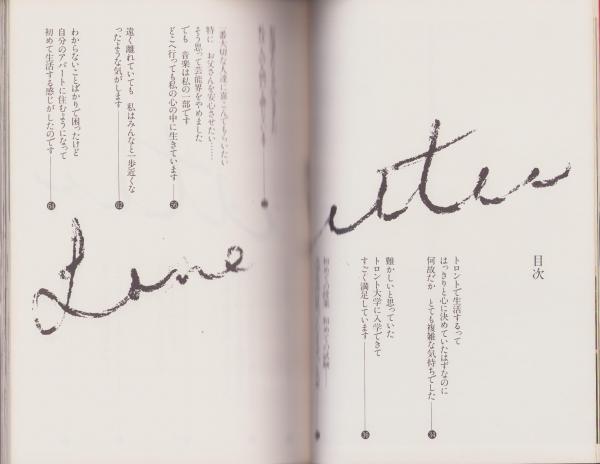 目次
トロントで生活するって
はっきりと心に決めていたはずなのに
何故だか とても複雑な気持ちでした
34
難かしいと思っていた
トロント大学に入学できて
すごく満足しています
36
初めての授業 初めての試験
一番大切な人達に喜こんでもらいたい
特に お父さんを安心させたい……
そう思って芸能界をやめました
でも 音楽は私の一部です
どこへ行っても私の心の中に生きています
56
遠く離れていても 私はみんなと一歩近くな
ったような気がします
62
わからないことばかりで困ったけど
自分のアパートに住むようになって
初めて生活する感じがしたのです
64
Love